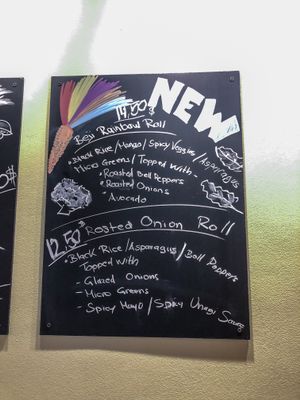 NEW
14.50$
Beji Rainbow Roll
• Black Rice/Mango/Spicy Veggies/Asparagus
Micro Greens/Topped with
• Roasted Bell Peppers
• Roasted Onions
- Avocado
12.50$ Rosted Onion Roll
• Black Rice/Asparagus/Bell Peppers
Topped with
- Glazed Onions
- Micro Greens
- Spicy Mayo/Spicy Unagi Sauce